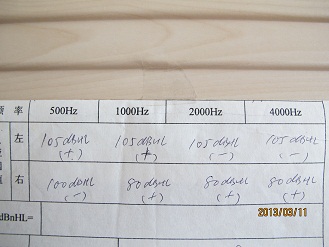 率 500Hz 1000Hz 2000Hz 4000Hz
左 105dBnHL 105dBnHL 105dBnHL 105dBnHL
(+) (+) (-) (-)
右 100dBnHL 80dBnHL 80dBnHL 80dBnHL
(-) (+) (+) (+)
dBnHL=
2013/03/11